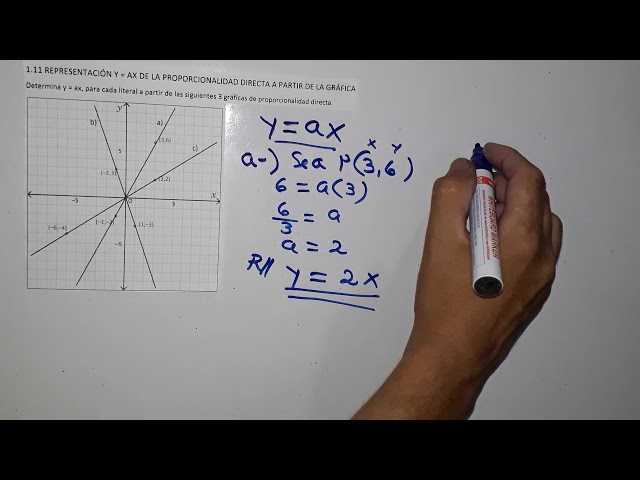 1.11 REPRESENTACIÓN Y = AX DE LA PROPORCIONALIDAD DIRECTA A PARTIR DE LA GRÁFICA
Determina y = ax, para cada literal a partir de las siguientes 3 gráficas de proporcionalidad directa.
y
b)
a)
(3,6)
c)
5
(-1,3)
(3,2)
x
-5
O
5
(-6,-4)
(1,-3)
-5
y = ax
x y
a-) Sea P(3,6)
6 = a(3)
6/3 = a
a = 2
R// y = 2x
WHITEBOARD MARKER